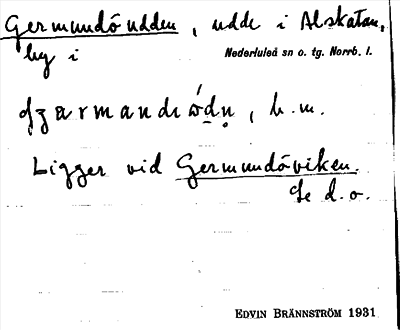 Germundöudden, udde i Alskatan,
by i Nederluleå sn o. tg. Norrb. l.
b. m.
Ligger vid Germundöviken.
Se d. o.
EDVIN BRÄNNSTRÖM 1931